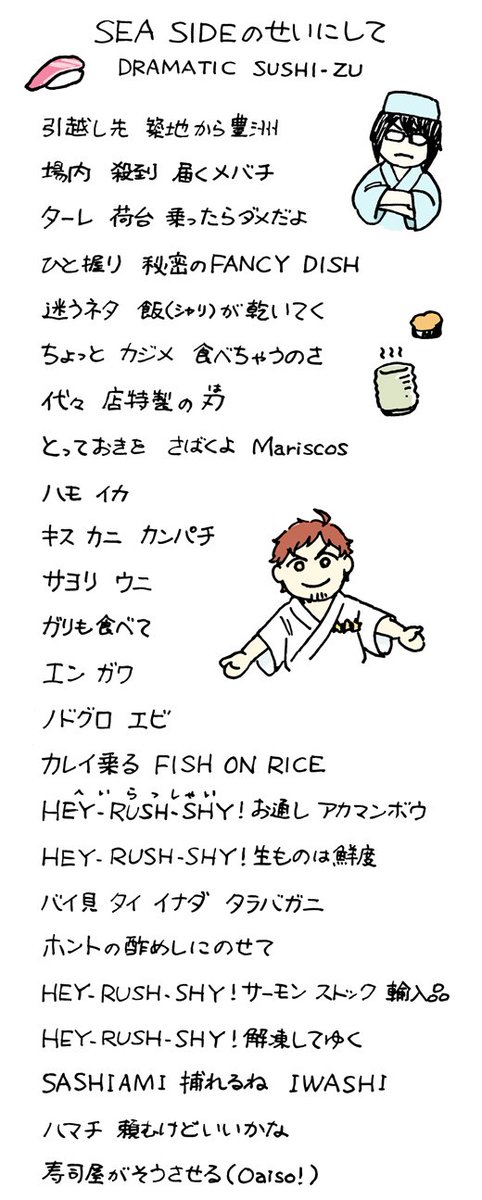 SEA SIDEのせいにして
DRAMATIC SUSHI-ZU
引越し先 築地から豊洲
場内 殺到 届くメバチ
ターレ 荷台 乗ったらダメだよ
ひと握り 秘密のFANCY DISH
迷うネタ 飯(シャリ)が乾いてく
ちょっと カジメ 食べちゃうのさ
は
代々 店特製の刃
とっておきを さばくよ Mariscos
ハモ イカ
キス カニ カンパチ
サヨリ ウニ
ガリも食べて
エン ガワ
ノドグロ エビ
カレイ乗る FISH ON RICE
へいらっしゃい
HEY-RUSH-SHY!お通し アカマンボウ
HEY-RUSH-SHY!生ものは鮮度
バイ貝 タイ イナダ タラバガニ
ホントの酢めしにのせて
HEY-RUSH-SHY!サーモン ストック 輸入品
HEY-RUSH-SHY!解凍してゆく
SASHIAMI 捕れるね IWASHI
ハマチ 頼むけどいいかな
寿司屋がそうさせる(Oaiso!)